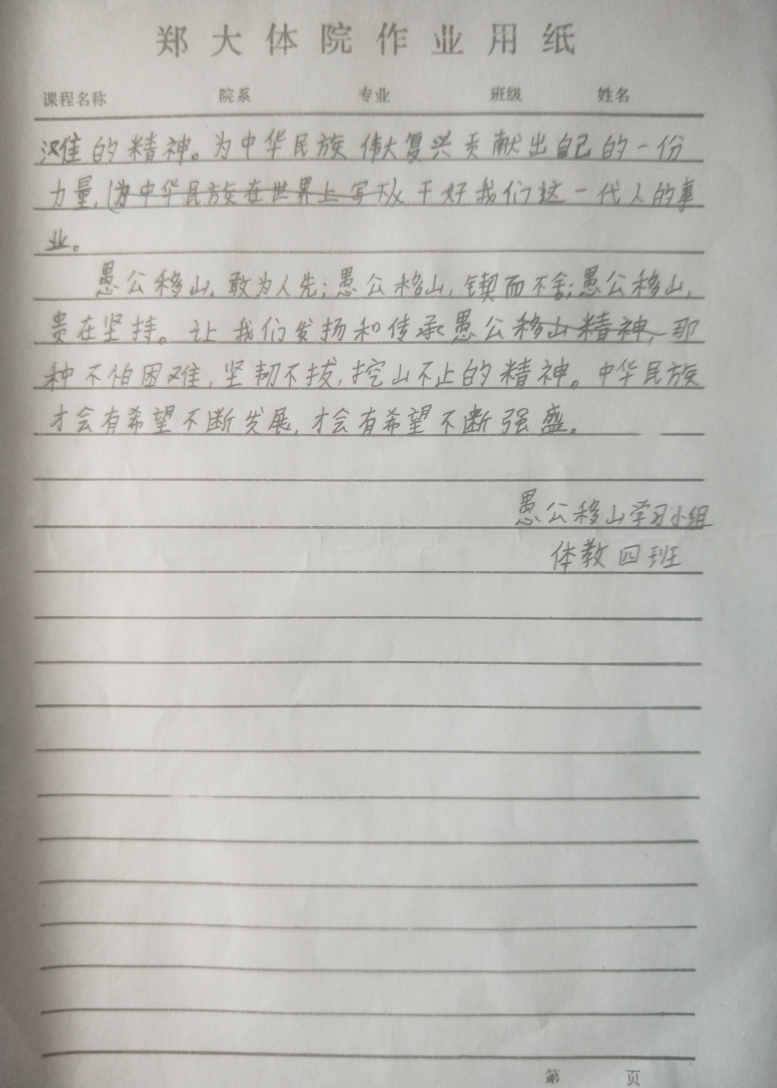 郑大体院作业用纸
课程名称 院系 专业 班级 姓名
难的精神。为中华民族伟大复兴贡献出自己的一份
力量,(为中华民族在世界上写下)干好我们这一代人的事
业。
愚公移山,敢为人先;愚公移山,锲而不舍;愚公移山,
贵在坚持。让我们发扬和传承愚公移山精神,那
种不怕困难,坚韧不拔,挖山不止的精神。中华民族
才会有希望不断发展,才会有希望不断强盛。
愚公移山学习小组
体教四班
第 页